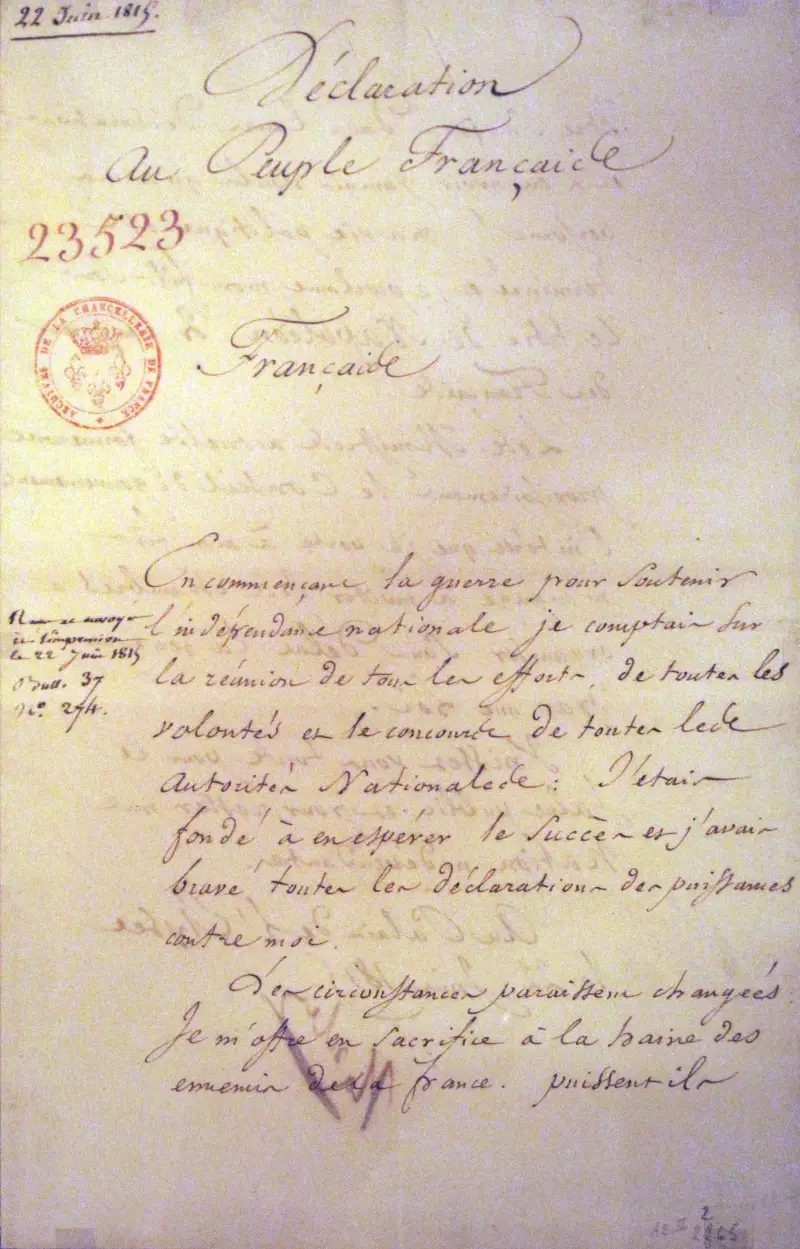 22 Juin 1815.
Déclaration
Au Peuple Français
23523
ARCHIVES DE LA CHANCELLERIE DE FRANCE
Français
En commençant la guerre pour soutenir
l'indépendance nationale je comptais sur
la réunion de tous les efforts, de toutes les
volontés et le concours de toutes les
autorités Nationales : J'étais
fondé à en espérer le succès et j'avais
bravé toutes les déclarations des puissances
contre moi.
Les circonstances paraissent changées.
Je m'offre en sacrifice à la haine des
ennemis de la france. puissent ils
envoyé
à l'impression
le 22 Juin 1815
Bull. 37
N.º 274.
AE II
2